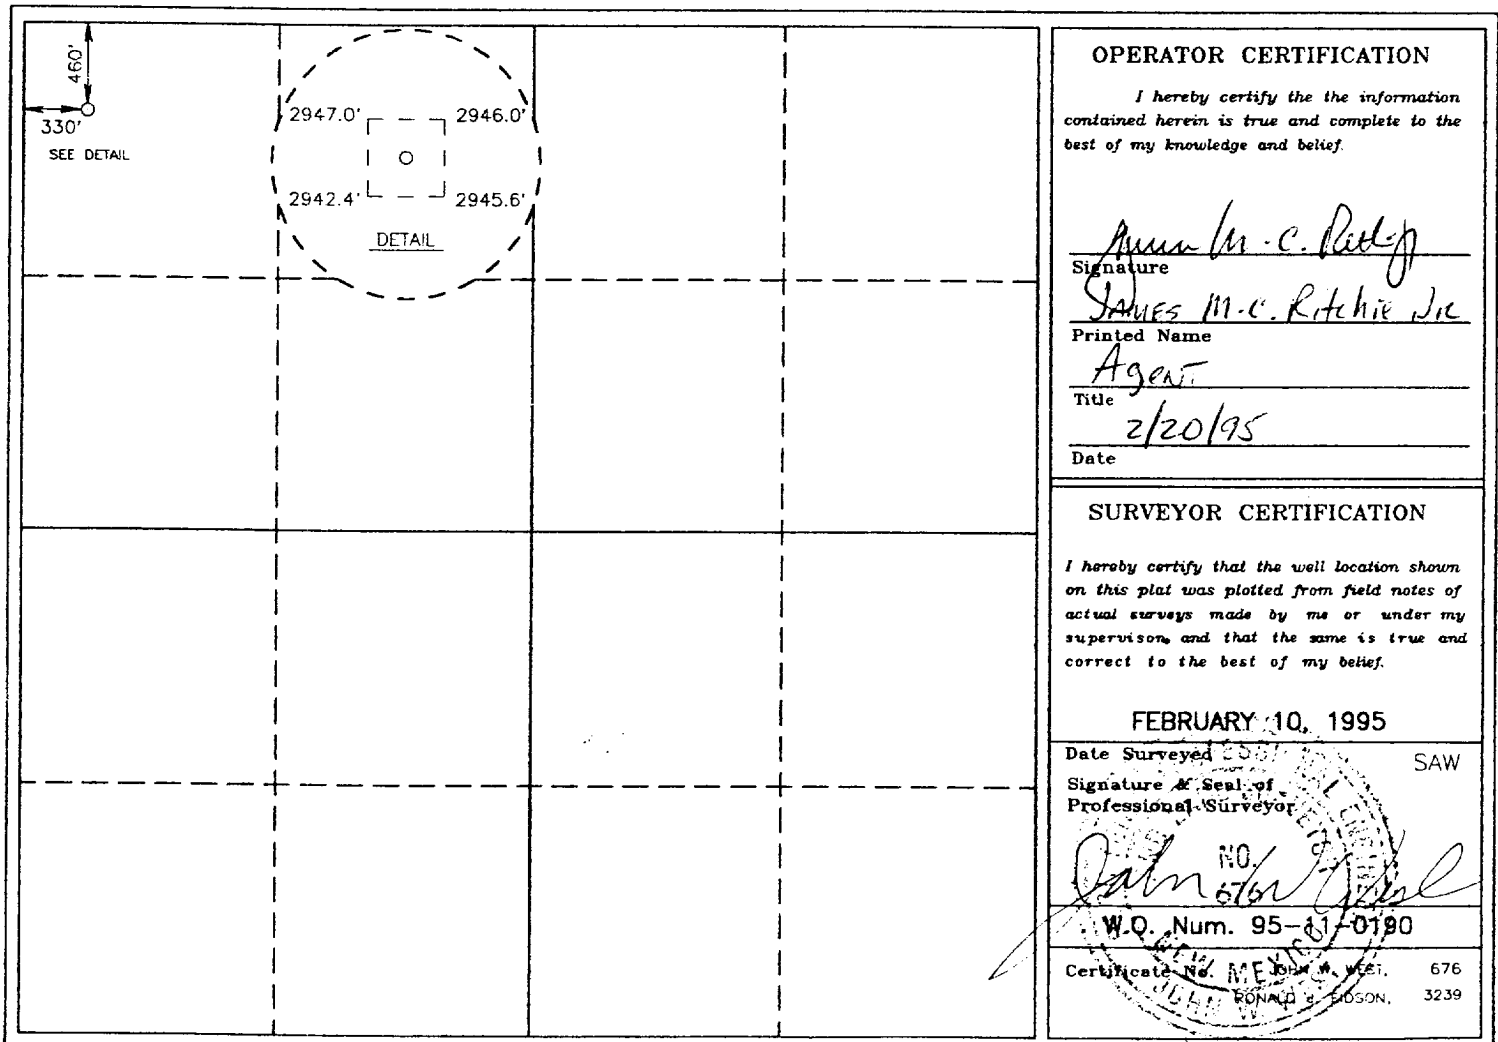 460'
330'
SEE DETAIL
2947.0' 2946.0'
2942.4' 2945.6'
DETAIL
OPERATOR CERTIFICATION
I hereby certify the the information
contained herein is true and complete to the
best of my knowledge and belief.
Signature
JAMES M.C. Ritchie Jr
Printed Name
Agent
Title
2/20/95
Date
SURVEYOR CERTIFICATION
I hereby certify that the well location shown
on this plat was plotted from field notes of
actual surveys made by me or under my
supervison, and that the same is true and
correct to the best of my belief.
FEBRUARY 10, 1995
Date Surveyed SAW
Signature & Seal of
Professional Surveyor
NO.
676
John W West
W.O. Num. 95-11-0190
NEW MEXICO
JOHN W. WEST
Certificate No. JOHN W. WEST, 676
RONALD J. EIDSON, 3239